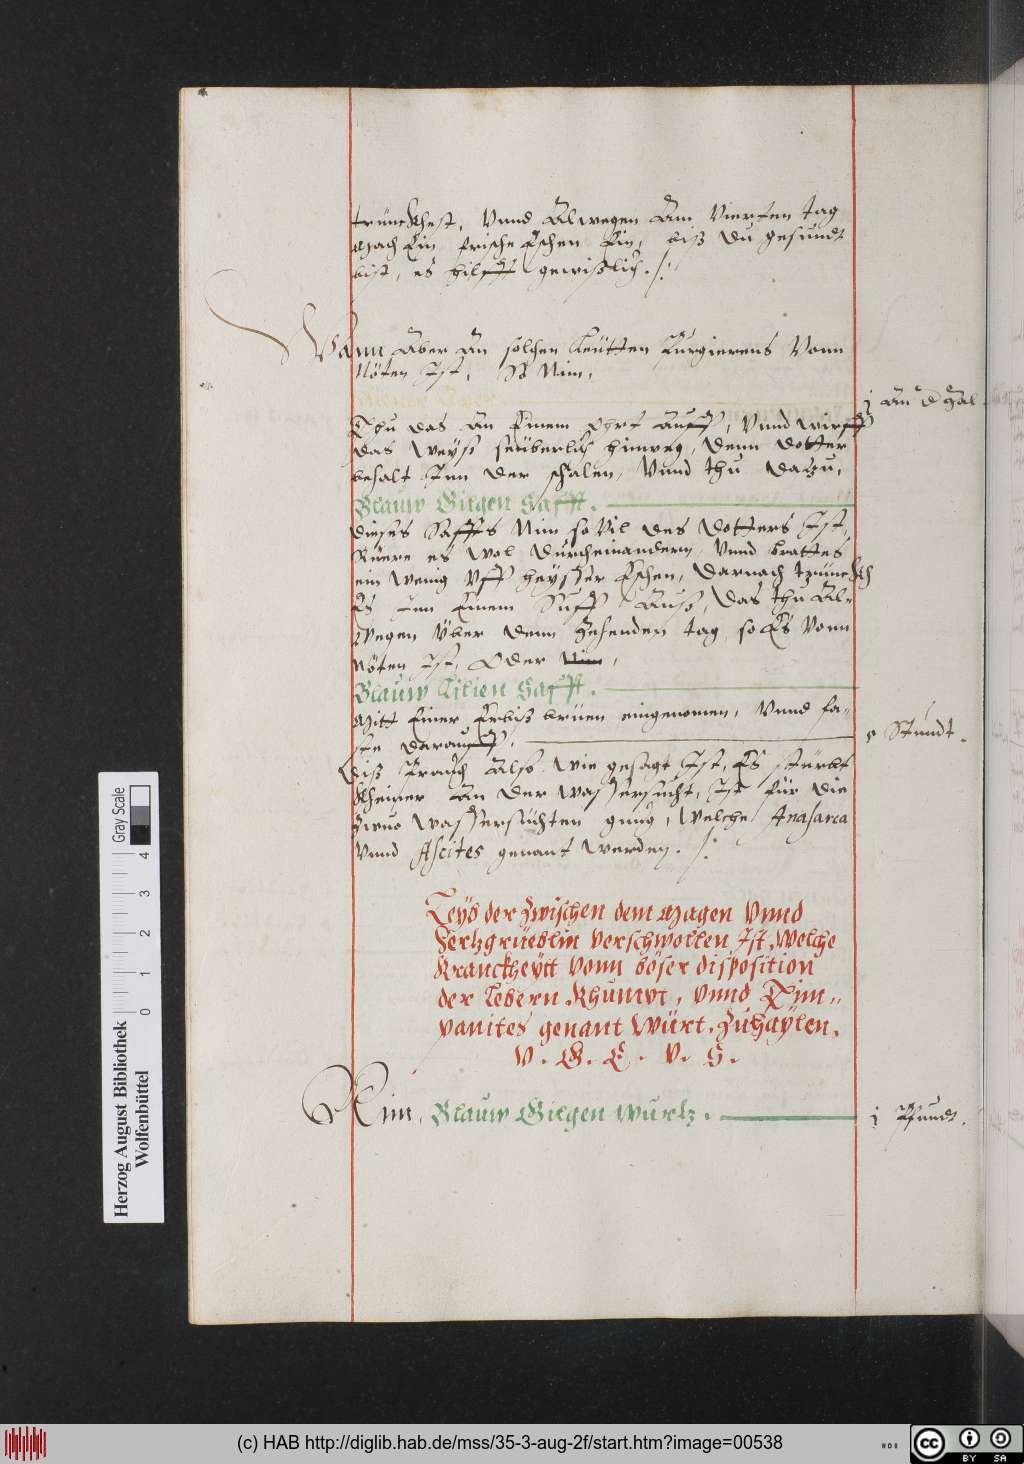 trünckhest, Vnnd Alwegen Am Vierten tag
Mach Ein frische Eschen Ein, biß du gesundt
bist, es hilfft gewißlich ./.
Wann Aber An solchen Leütten Purgierens Vonn
Nöten Ist, So Nim,
j An d Zal.
Thu das An Einem Ohrt Auff, Vnnd wirff
das Weyß seüberlich hinweg, denn dotter
behalt Inn der schalen, Vnnd thu dazu,
Blauw Gilgen Safft.
dieses Saffts Nim so Vil des dotters Ist,
Rüere es wol durcheinandern, Vnnd brattes
ein wenig Vff heysser Eschen, darnach trünckh
Es Inn Einem Suff Auß, das thu Al-
wegen Vber denn Zehenden tag, so Es Vonn
nöten Ist, Oder Nim,
Blauw Lilien Safft.
Mitt Einer Erbiß brüen eingenomen, Vnnd fa-
ste darauff,
Stundt.
diß Prauch Also wie gesagt Ist, Es stürbt
Kheiner An der wassersucht, Ist für die
Zwuo wassersüchten gnug, welche Anasarca
Vnnd Ascites genant werden ./.
Leyb der Zwischen dem Magen Vnnd
Hertzgrüeblin Verschwollen Ist, Welche
Kranckheytt Vonn böser disposition
der Lebern Khumpt, Vnnd Tim-
panites genant Würt, Zuhaylen.
V. G. E. V. H.
Nim, Blauw Gilgen wurtz.
j Pfundt.
Herzog August Bibliothek
Wolfenbüttel
Gray Scale
0 1 2 3 4
(c) HAB http://diglib.hab.de/mss/35-3-aug-2f/start.htm?image=00538
cc BY SA